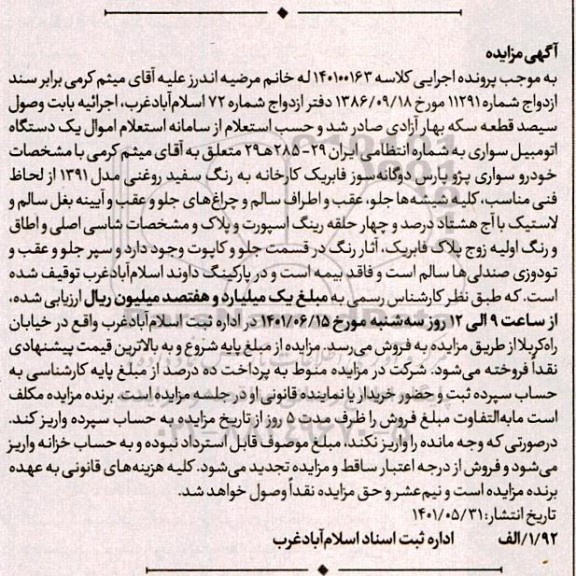 آگهی مزایده
به موجب پرونده اجرایی کلاسه ۱۴۰۱۰۰۱۶۳ له خانم مرضیه اندرز علیه آقای میثم کرمی برابر سند
ازدواج شماره ۱۱۲۹۱ مورخ ۱۳۸۶/۰۹/۱۸ دفتر ازدواج شماره ۷۲ اسلام‌آبادغرب، اجرائیه بابت وصول
سیصد قطعه سکه بهار آزادی صادر شد و حسب استعلام از سامانه استعلام اموال یک دستگاه
اتومبیل سواری به شماره انتظامی ایران ۲۹-۲۸۵هـ۲۹ متعلق به آقای میثم کرمی با مشخصات
خودرو سواری پژو پارس دوگانه‌سوز فابریک کارخانه به رنگ سفید روغنی مدل ۱۳۹۱ از لحاظ
فنی مناسب، کلیه شیشه‌ها جلو، عقب و اطراف سالم و چراغ‌های جلو و عقب و آیینه بغل سالم و
لاستیک با آج هشتاد درصد و چهار حلقه رینگ اسپورت و پلاک و مشخصات شاسی اصلی و اطاق
و رنگ اولیه زوج پلاک فابریک، آثار رنگ در قسمت جلو و کاپوت وجود دارد و سپر جلو و عقب و
تودوزی صندلی‌ها سالم است و فاقد بیمه است و در پارکینگ داوند اسلام‌آبادغرب توقیف شده
است. که طبق نظر کارشناس رسمی به مبلغ یک میلیارد و هفتصد میلیون ریال ارزیابی شده،
از ساعت ۹ الی ۱۲ روز سه‌شنبه مورخ ۱۴۰۱/۰۶/۱۵ در اداره ثبت اسلام‌آبادغرب واقع در خیابان
راه‌کربلا از طریق مزایده به فروش می‌رسد. مزایده از مبلغ پایه شروع و به بالاترین قیمت پیشنهادی
نقداً فروخته می‌شود. شرکت در مزایده منوط به پرداخت ده درصد از مبلغ پایه کارشناسی به
حساب سپرده ثبت و حضور خریدار یا نماینده قانونی او در جلسه مزایده است. برنده مزایده مکلف
است مابه‌التفاوت مبلغ فروش را ظرف مدت ۵ روز از تاریخ مزایده به حساب سپرده واریز کند.
درصورتی که وجه مانده را واریز نکند، مبلغ موصوف قابل استرداد نبوده و به حساب خزانه واریز
می‌شود و فروش از درجه اعتبار ساقط و مزایده تجدید می‌شود. کلیه هزینه‌های قانونی به عهده
برنده مزایده است و نیم‌عشر و حق مزایده نقداً وصول خواهد شد.
تاریخ انتشار: ۱۴۰۱/۰۵/۳۱
۱/۹۲/الف اداره ثبت اسناد اسلام‌آبادغرب